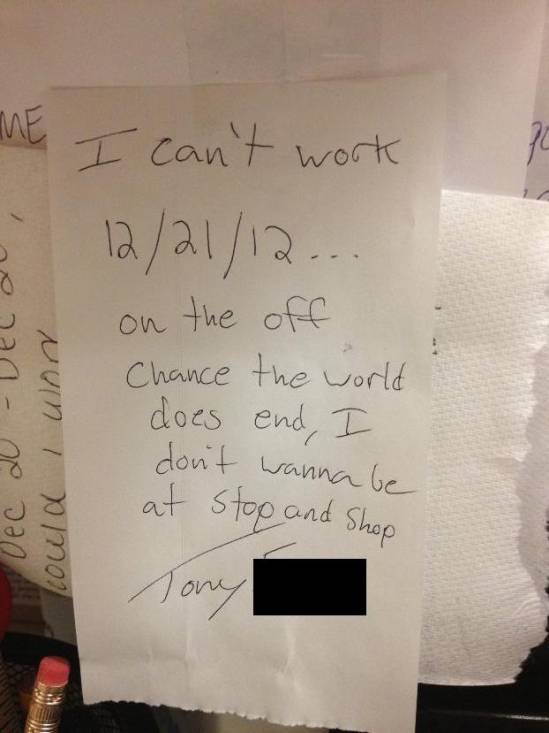 I can't work
12/21/12...
on the off
Chance the world
does end, I
don't wanna be
at Stop and Shop
Tony
ME
Dec 20 - Dec 20,
could I work